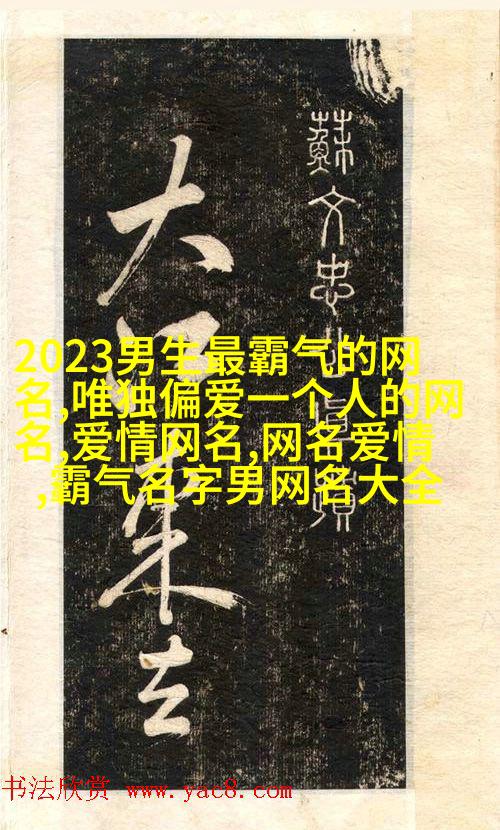 蘇文忠公真蹟
大江東去
2023男生最霸气的网
名,唯独偏爱一个人的网
名,爱情网名,网名爱情
,霸气名字男网名大全
书法欣赏 www.yac8.com